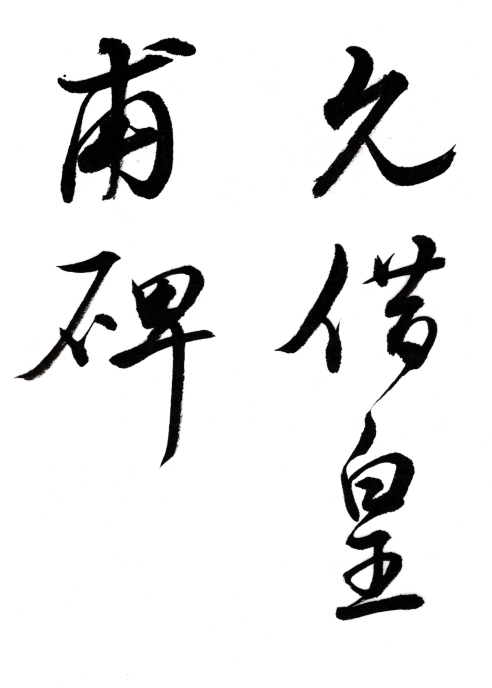 久借皇
甫碑